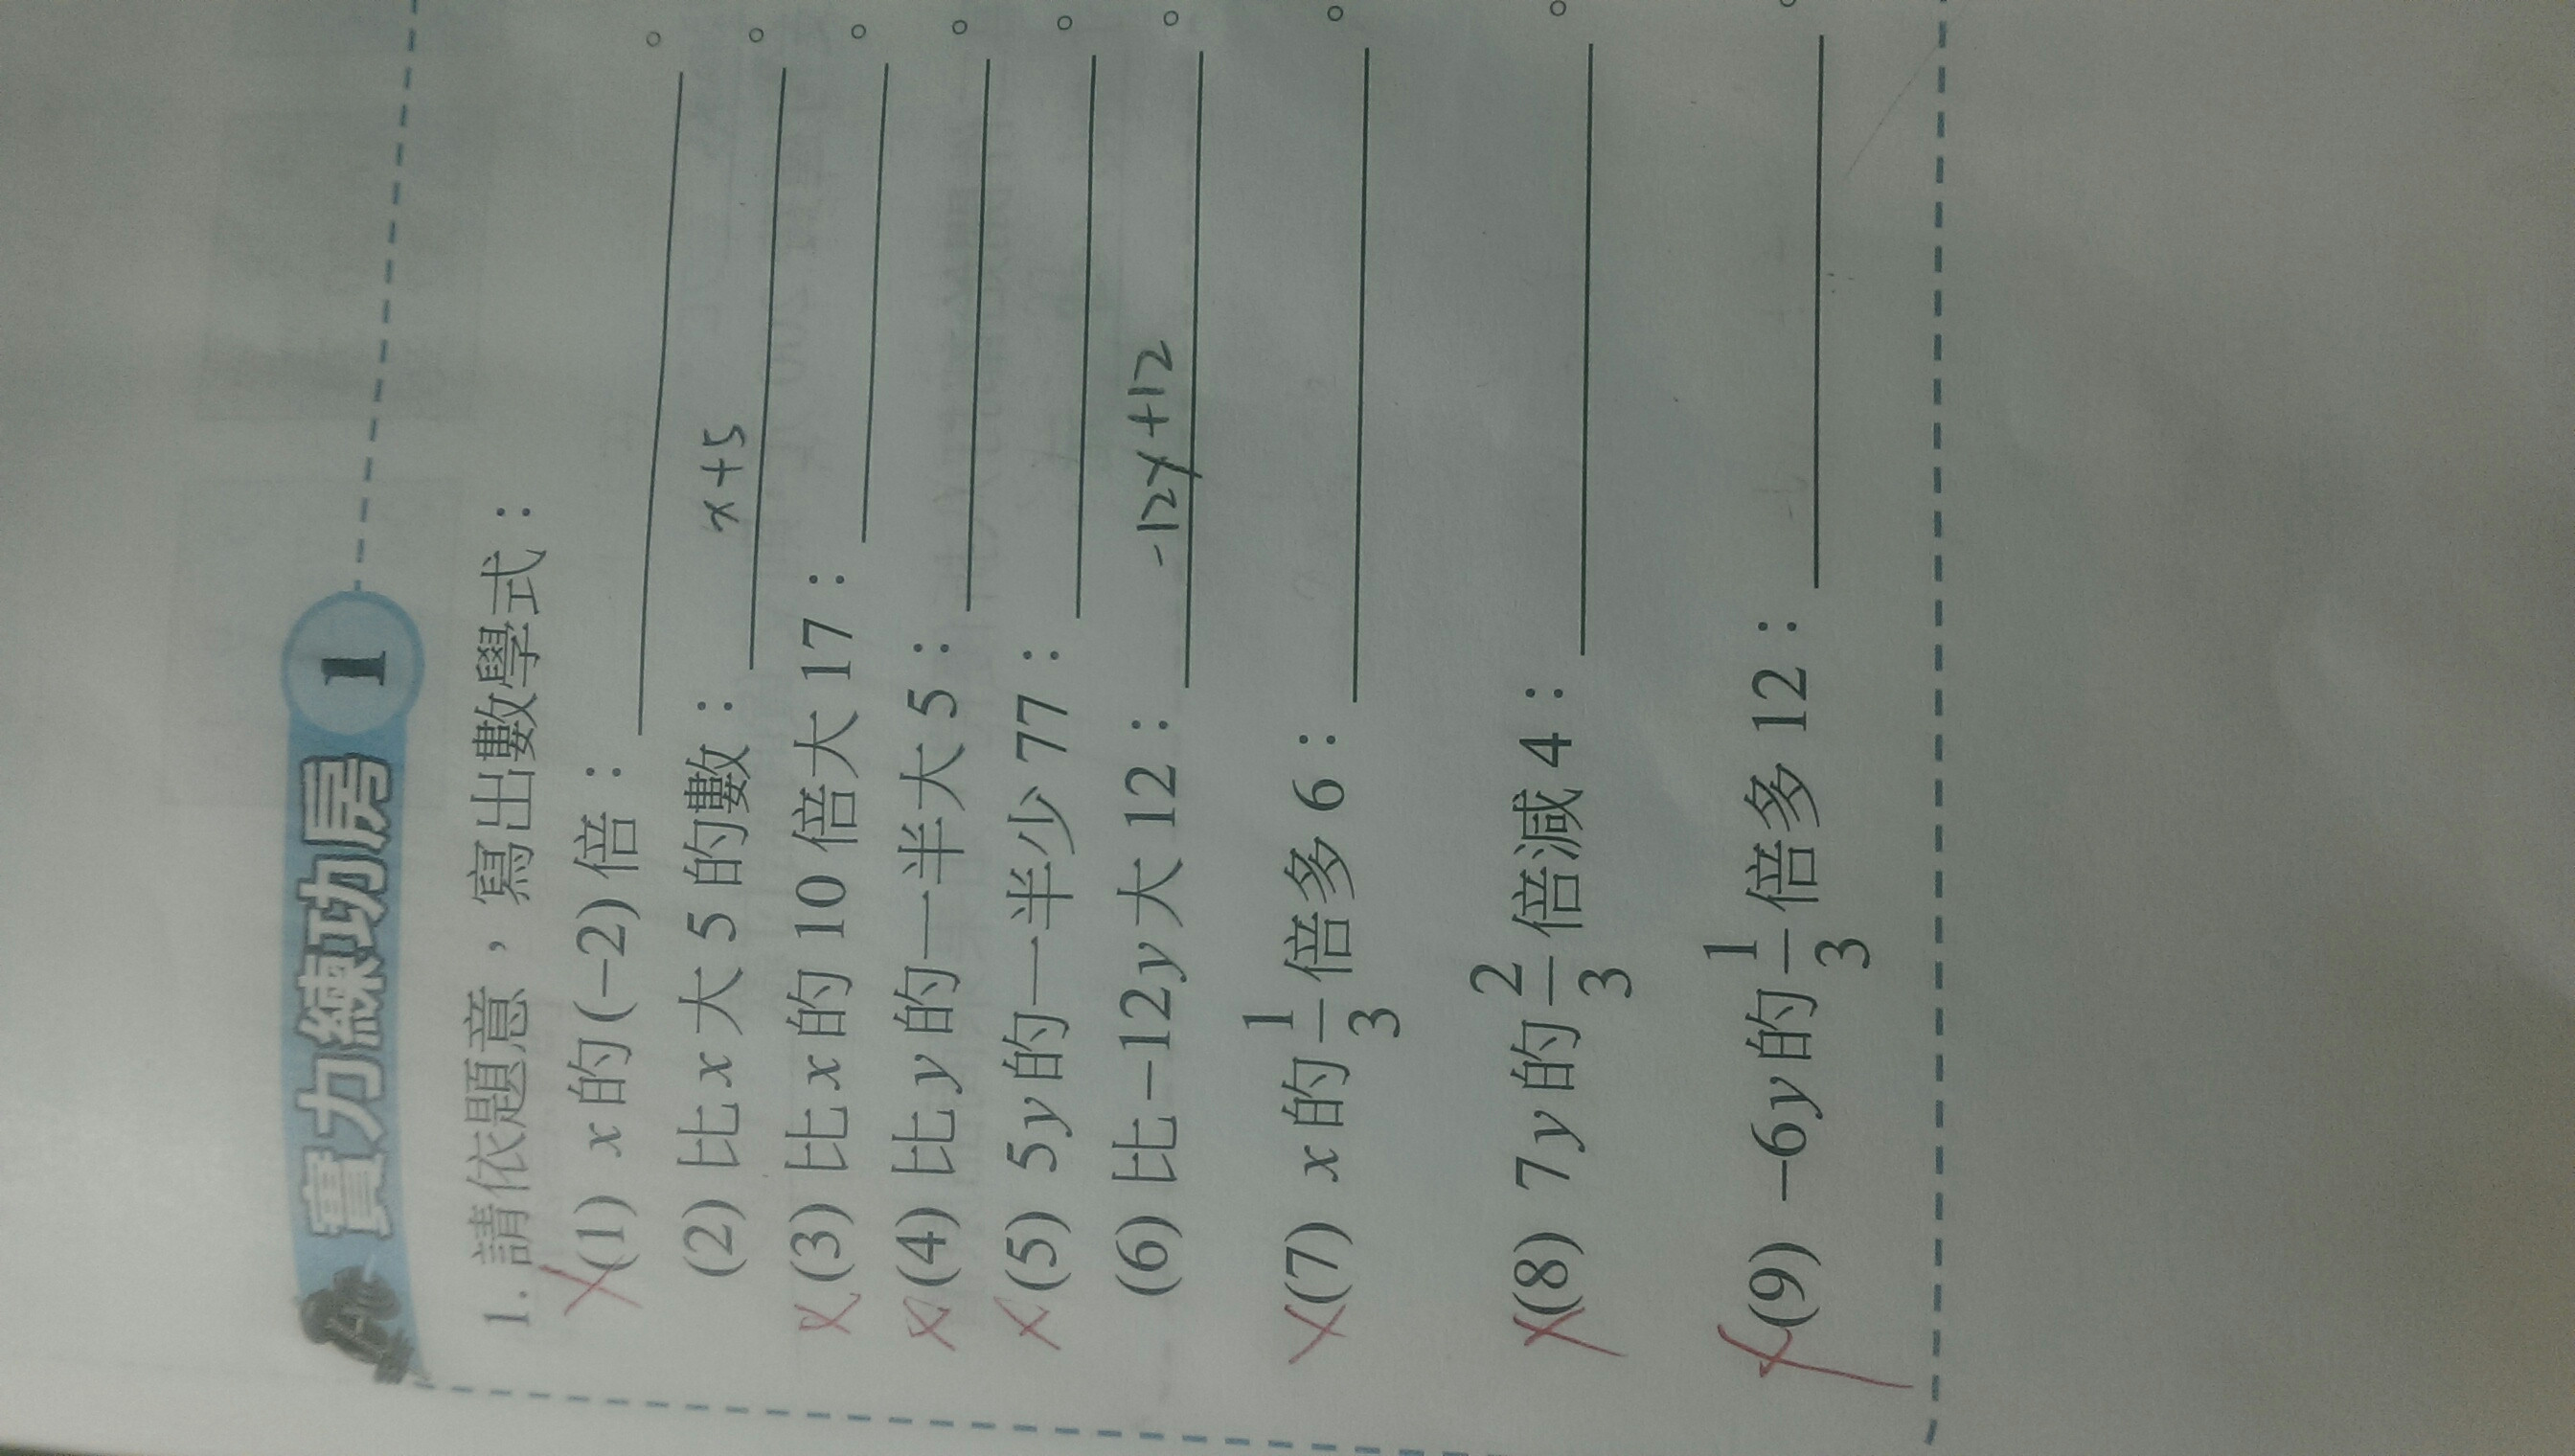 實力練功房 1
1. 請依題意，寫出數學式：
(1) x 的 (−2) 倍：＿＿＿＿＿＿。
(2) 比 x 大 5 的數：x+5。
(3) 比 x 的 10 倍大 17：＿＿＿＿＿＿。
(4) 比 y 的一半大 5：＿＿＿＿＿＿。
(5) 5y 的一半少 77：＿＿＿＿＿＿。
(6) 比 −12y 大 12：-12y+12。
(7) x 的 1/3 倍多 6：＿＿＿＿＿＿。
(8) 7y 的 2/3 倍減 4：＿＿＿＿＿＿。
(9) −6y 的 1/3 倍多 12：＿＿＿＿＿＿。